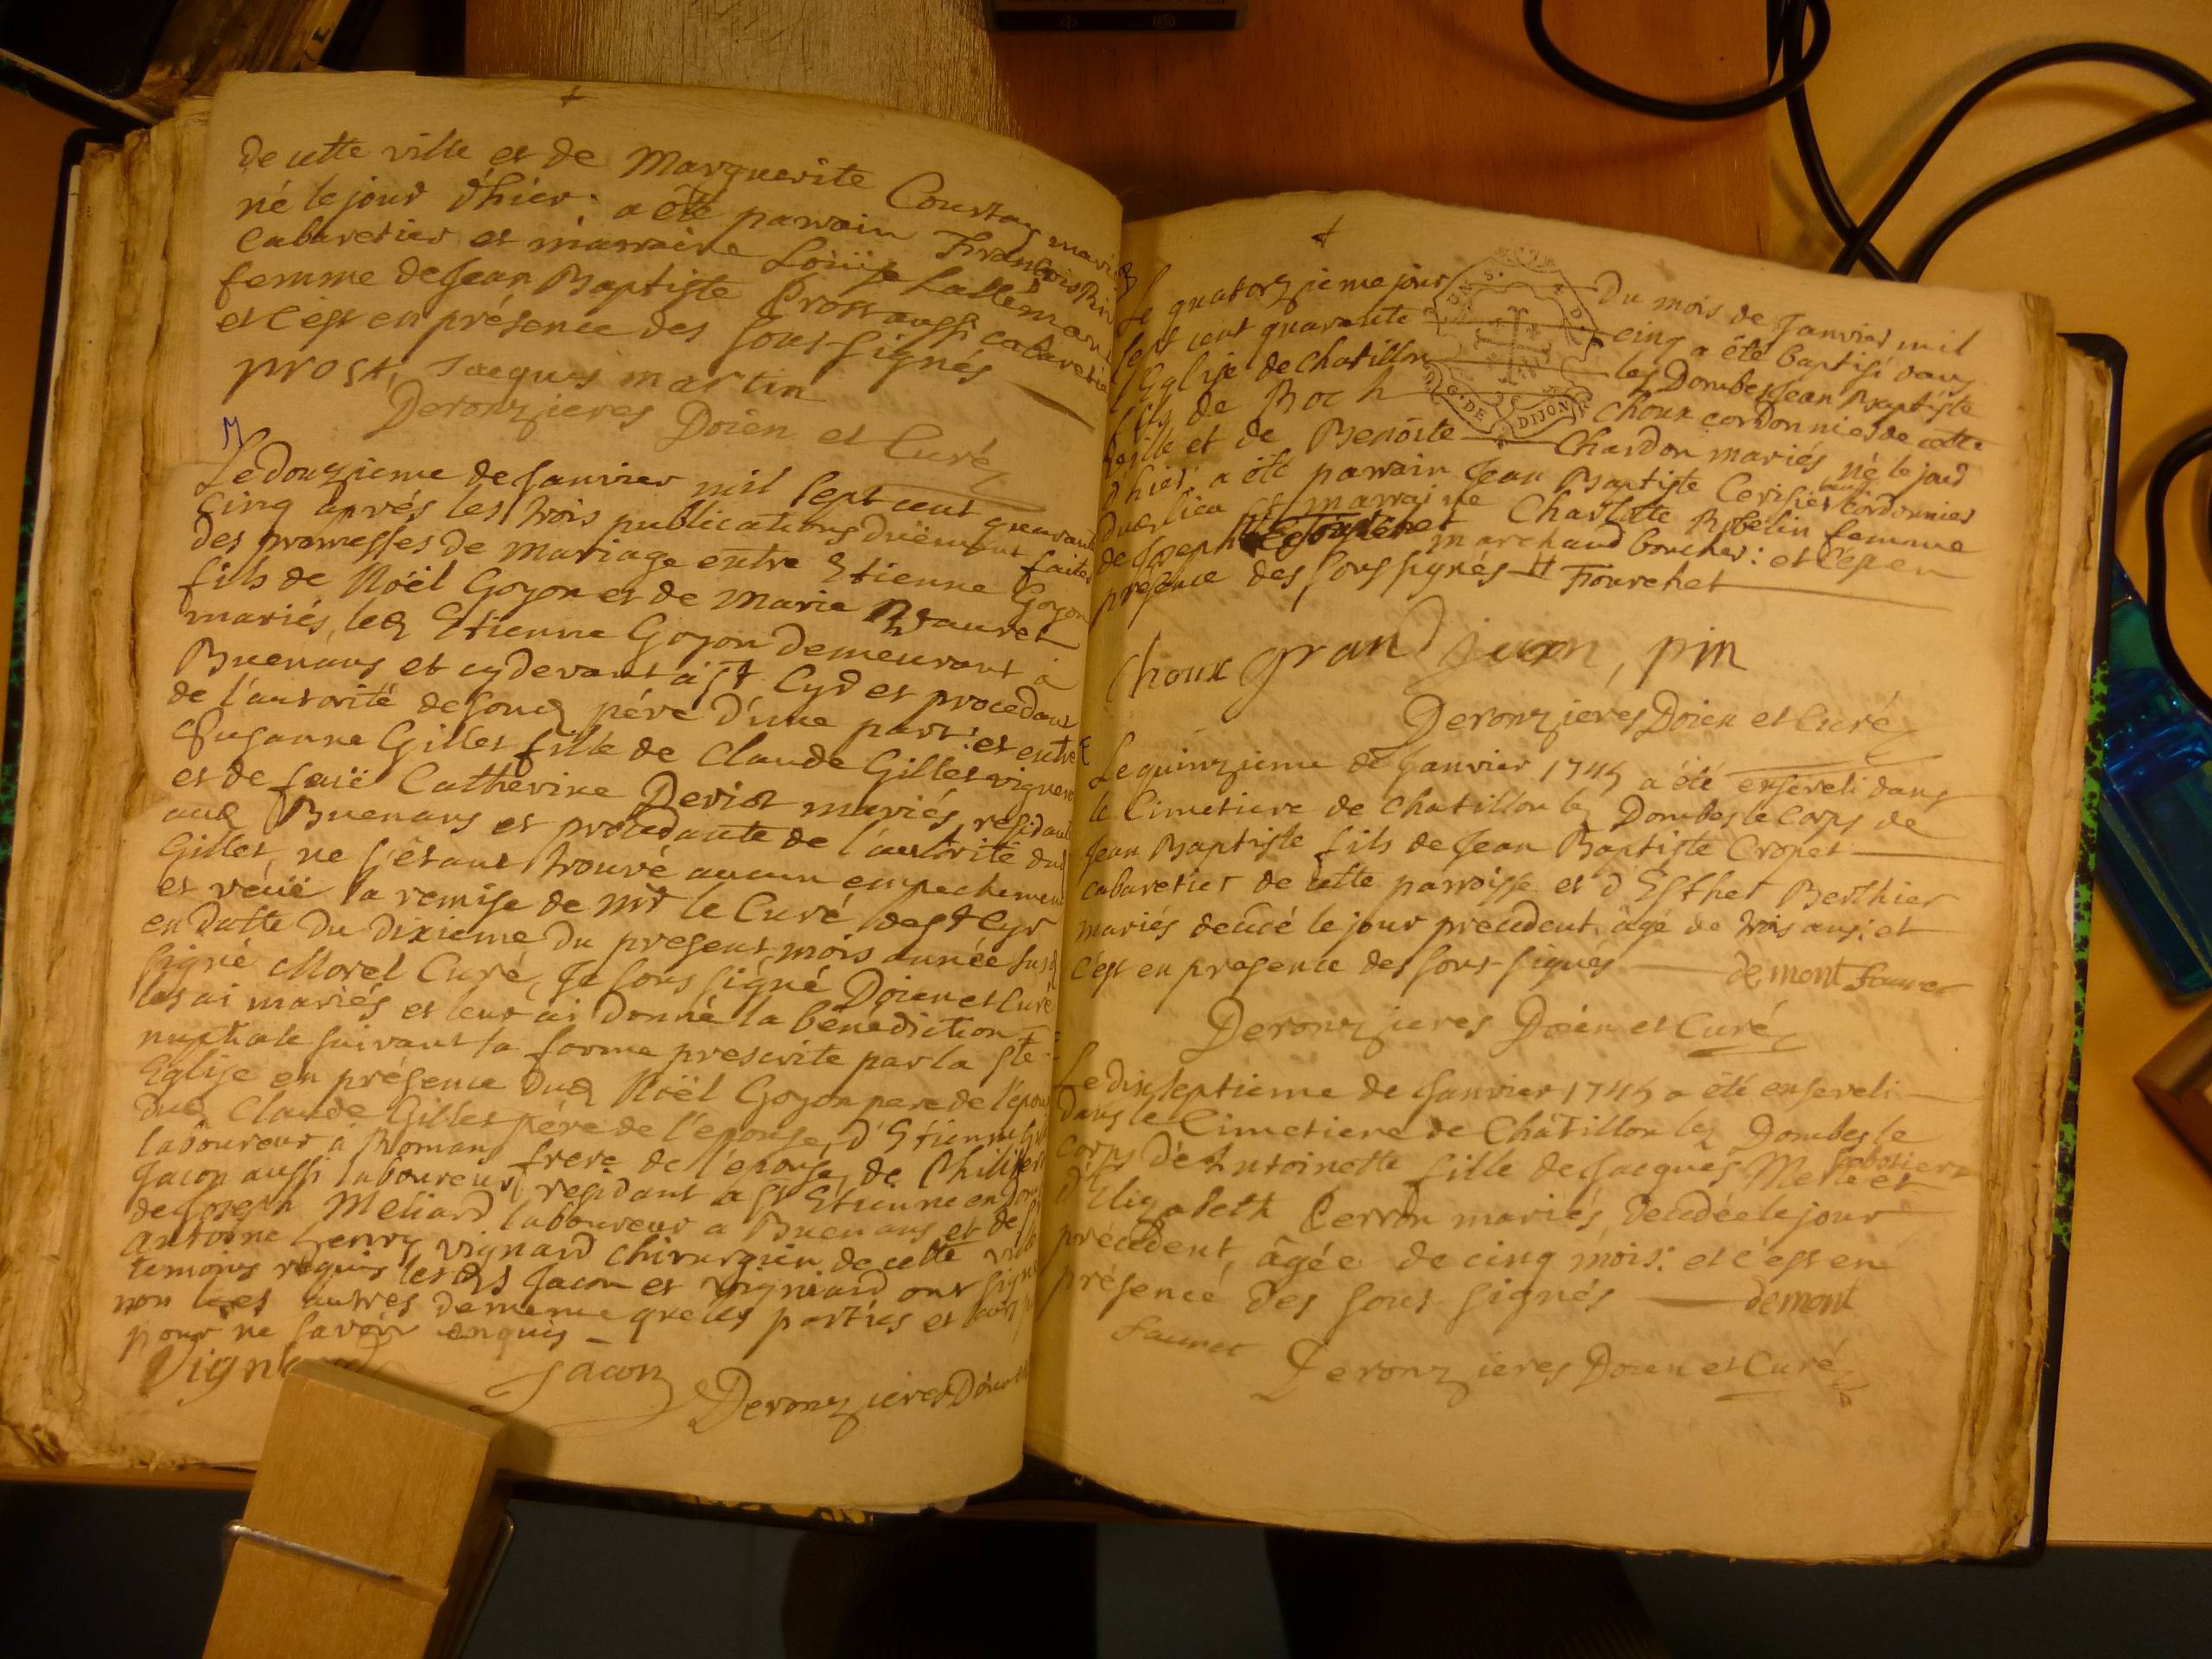 de cette ville et de Marguerite Coustan mariés
né le jour d'hier: a été parrain François
Cabaretier et marraine Loüise Lallemant
femme de Jean Baptiste Prost aussi cabaretier
et c'est en présence des sous-signés
prost, Jacques martin
Deronzieres Doïen et Curé
M
Le douzieme de Janvier mil sept cent quarante
cinq aprés les trois publications duëment faites
des promesses de mariage entre Etienne Goyon
fils de Noël Goyon et de Marie
mariés, led Etienne Goyon demeurant à
Buenans et cydevant à St Cyr et procedant
de l'autorité de soud pére d'une part: et entre
Susanne Gillet fille de Claude Gillet vigneron
et de feuë Catherine Deriot mariés, residant
aud Buenans et procedante de l'autorité dud
Gillet, ne s'étant trouvé aucun empechement
et veuë la remise de Mr le Curé de St Cyr
en datte du dixieme du present mois année susd
signé Morel Curé, Je sous signé Doïen et Curé
les ai mariés et leur ai donné la bénédiction
nuptiale suivant la forme prescrite par la Ste
Eglise en présence dud Noël Goyon pere de l'epoux
dud Claude Gillet pére de l'epouse, d'Etienne
laboureur à Romans frere de l'epouse, de Philibert
Jacon aussi laboureur residant a St Etienne en
de Joseph Meliard laboureur a Buenans et de
Antoine henry vignard chirurgien de cette ville
temoins requis lesds Jacon et vigniard ont signé
non les autres de meme que les parties et
pour ne savoir enquis
Jacon Deronzieres Doïen
Le quatorzieme jour du mois de Janvier mil
sept cent quarante cinq a été baptisé dans
l'Eglise de chatillon les Dombes Jean Baptiste
fils de Roch Choux cordonnier de cette
ville et de Benoite Chardon mariés né le jour
d'hier: a été parrain Jean Baptiste Cerisier cordonnier
dud lieu et marraine Charlotte Robelin femme
de Joseph marchand boucher: et c'est en
présence des sous signés Fourchet
Choux grand jean, pin
Deronzieres Doïen et Curé
Le quinzieme de Janvier 1745 a été enseveli dans
le Cimetiere de Chatillon les Dombes le corps de
Jean Baptiste fils de Jean Baptiste Cropet
cabaretier de cette parroisse et d'Esther Berthier
mariés decedé le jour precedent, âgé de trois ans: et
c'est en presence des sous-signés demont
Deronzieres Doïen et Curé
Le dix septieme de Janvier 1745 a été enseveli
dans le Cimetiere de Châtillon les Dombes le
corps d'Antoinette fille de Jacques Merle et
d'Elizabeth Perron mariés, decedée le jour
précedent, âgée de cinq mois: et c'est en
présence des sous signés demont
Deronzieres Doïen et Curé
G. DE DIJON